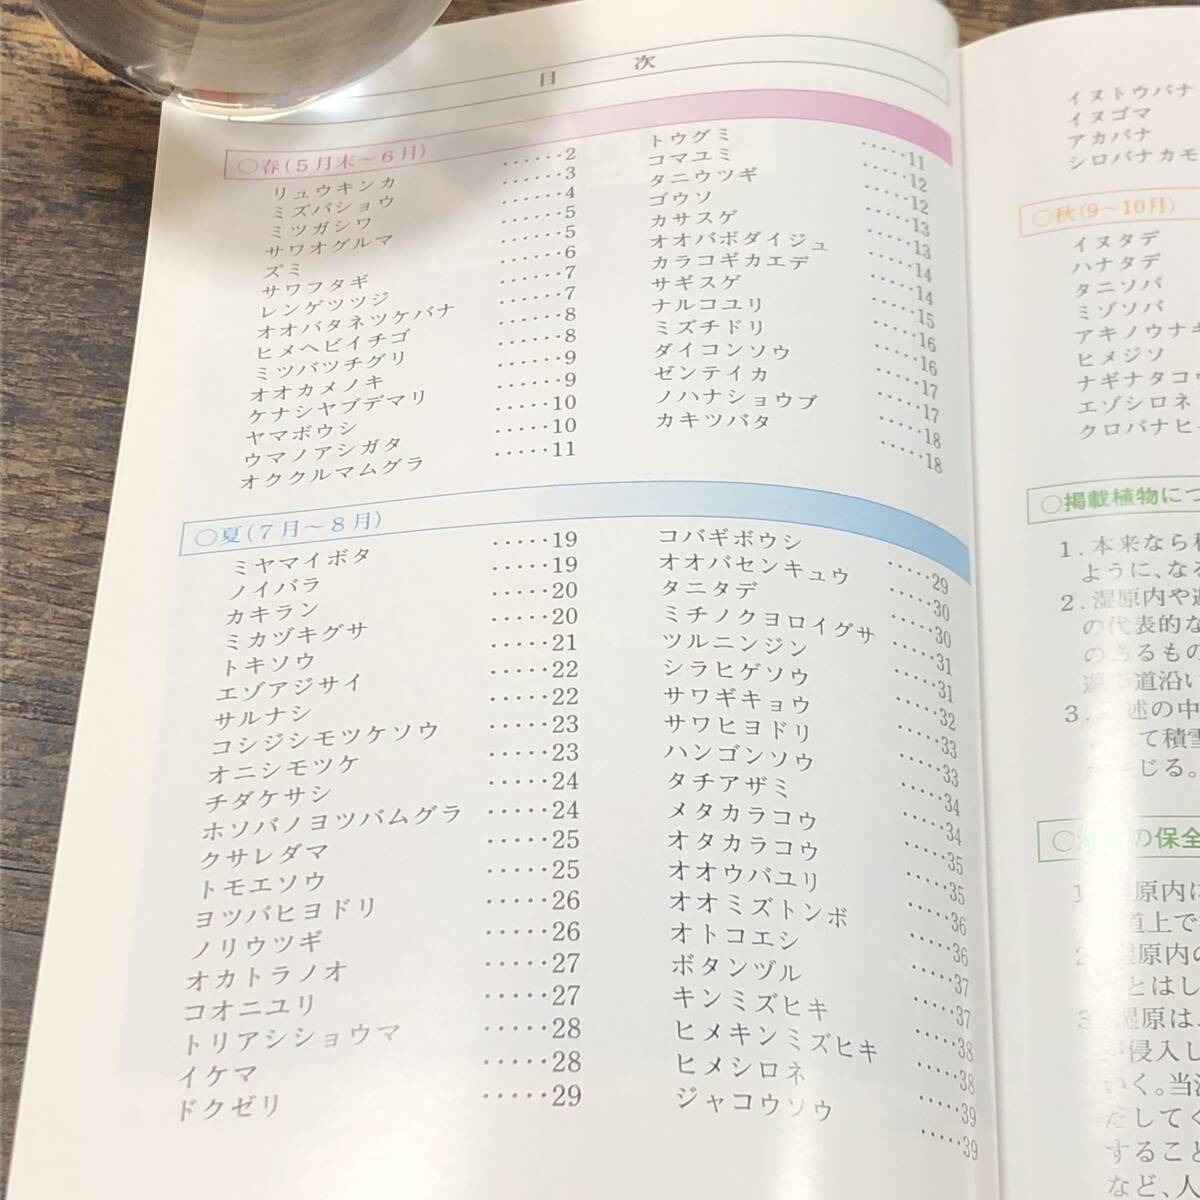 目次
○春(5月末～6月)
リュウキンカ ······2
ミズバショウ ······3
ミツガシワ ······4
サワオグルマ ······5
ズミ ······5
サワフタギ ······6
レンゲツツジ ······7
オオバタネツケバナ ······7
ヒメヘビイチゴ ······8
ミツバツチグリ ······8
オオカメノキ ······9
ケナシヤブデマリ ······9
ヤマボウシ ·····10
ウマノアシガタ ·····10
オククルマムグラ ·····11
トウグミ ·····11
コマユミ ·····12
タニウツギ ·····12
ゴウソ ·····13
カサスゲ ·····13
オオバボダイジュ ·····14
カラコギカエデ ·····14
サギスゲ ·····15
ナルコユリ ·····16
ミズチドリ ·····16
ダイコンソウ ·····17
ゼンテイカ ·····17
ノハナショウブ ·····18
カキツバタ ·····18
○夏(7月～8月)
ミヤマイボタ ·····19
ノイバラ ·····19
カキラン ·····20
ミカヅキグサ ·····20
トキソウ ·····21
エゾアジサイ ·····22
サルナシ ·····22
コシジシモツケソウ ·····23
オニシモツケ ·····23
チダケサシ ·····24
ホソバノヨツバムグラ ·····24
クサレダマ ·····25
トモエソウ ·····25
ヨツバヒヨドリ ·····26
ノリウツギ ·····26
オカトラノオ ·····27
コオニユリ ·····27
トリアシショウマ ·····28
イケマ ·····28
ドクゼリ ·····29
コバギボウシ ·····29
オオバセンキュウ ·····30
タニタデ ·····30
ミチノクヨロイグサ ·····31
ツルニンジン ·····31
シラヒゲソウ ·····32
サワギキョウ ·····33
サワヒヨドリ ·····33
ハンゴンソウ ·····34
タチアザミ ·····34
メタカラコウ ·····35
オタカラコウ ·····35
オオウバユリ ·····36
オオミズトンボ ·····36
オトコエシ ·····37
ボタンヅル ·····37
キンミズヒキ ·····38
ヒメキンミズヒキ ·····38
ヒメシロネ ·····39
ジャコウソウ ·····39
イヌトウバナ
イヌゴマ
アカバナ
シロバナカモ
○秋(9～10月)
イヌタデ
ハナタデ
タニソバ
ミゾソバ
アキノウナギ
ヒメジソ
ナギナタコウ
エゾシロネ
クロバナヒキ
○掲載植物につ
1.本来なら
ように、なる
2.湿原内や
の代表的な
のあるもの
道沿い
3. 述の中
て積雪
じる。
の保全
原内に
道上で
2 湿原内の
とはし
3 湿原は
侵入し
いく。当湿
だしてく
すること
など、人